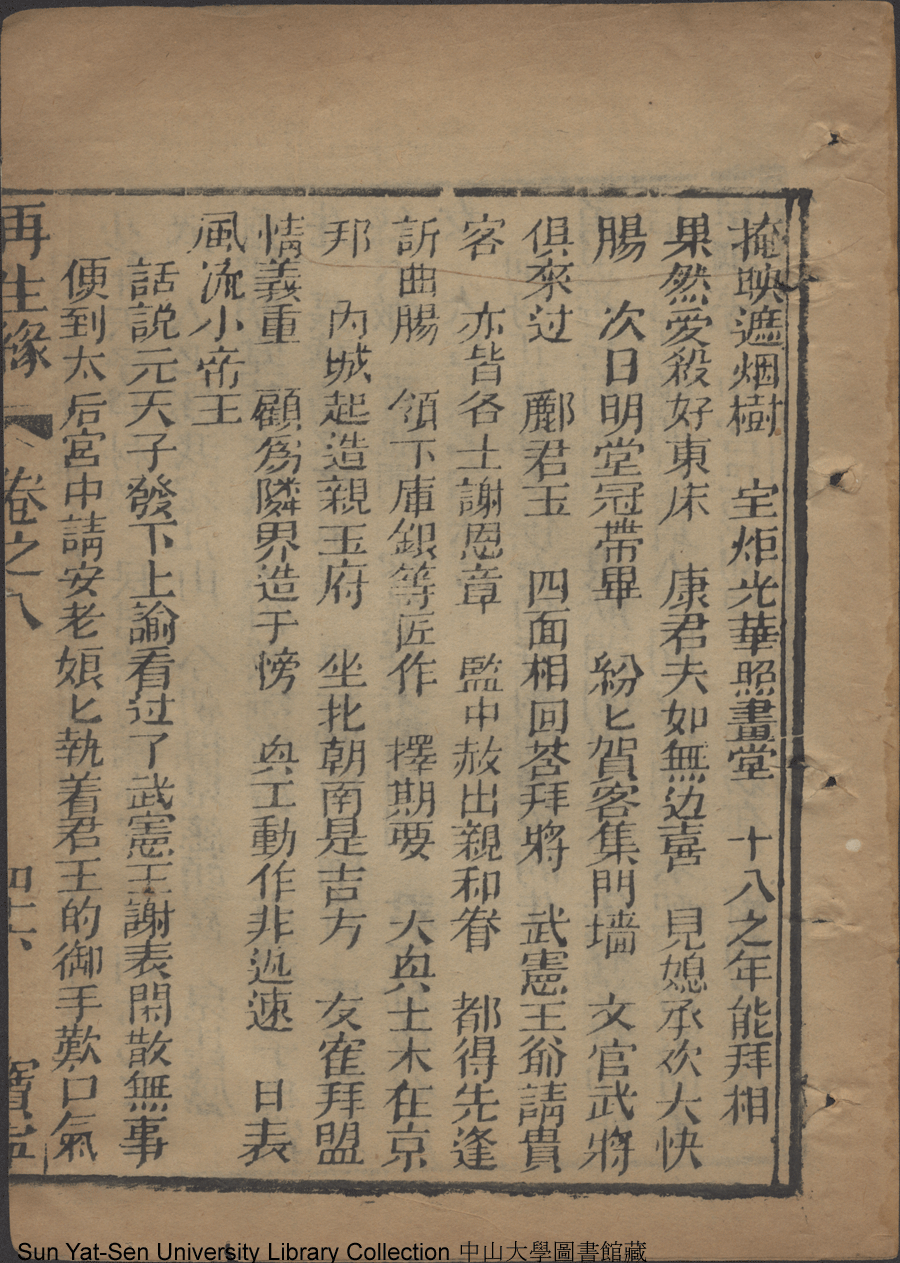 掩映遮烟樹　宝炬光華照畫堂　十八之年能拜相
果然愛殺好東床　康君夫如無边喜　見媳承欢大快
腸　次日明堂冠帶畢　紛匕賀客集門墻　文官武將
俱來过　酈君玉　四面相回荅拜將　武憲王爺請貴
客　亦皆各士謝恩章　監中赦出親和眷　都得先逢
訴曲腸　領下庫銀等匠作　擇期要　大興土木在京
邦　內城起造親王府　坐北朝南是吉方　友崔拜盟
情義重　顧為隣界造于傍　興工動作非迟速　日表
風流小帝王
話説元天子發下上諭看过了武憲王謝表閑散無事
便到太后宮中請安老娘匕執着君王的御手歎口氣
再生緣　卷之八　四十六　寳寧
Sun Yat-Sen University Library Collection 中山大學圖書館藏